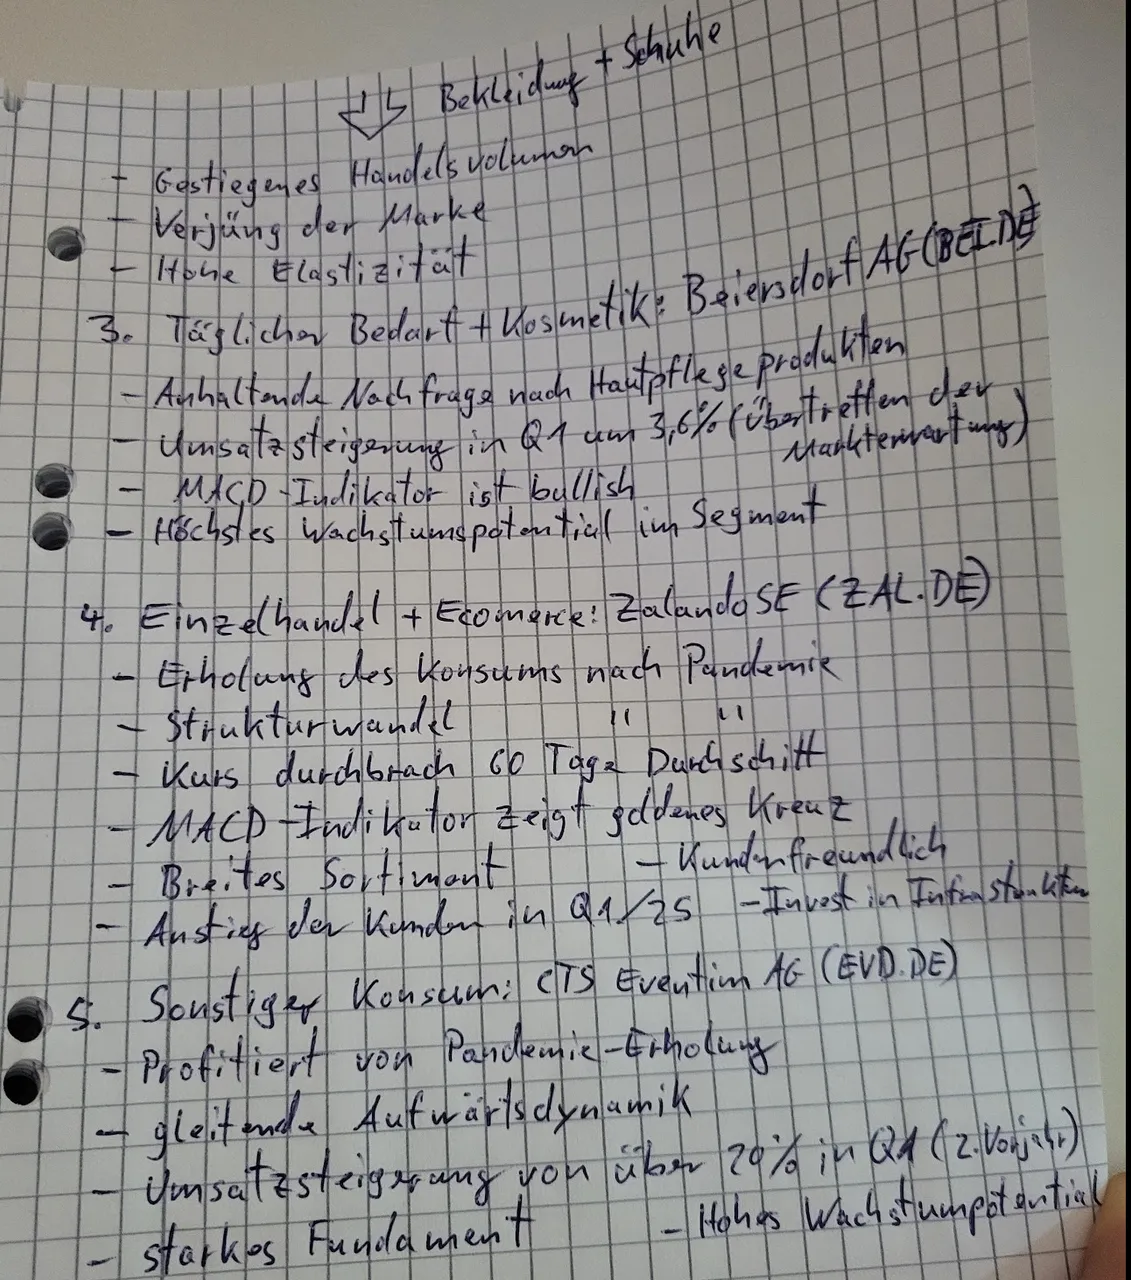 Bekleidung + Schuhe
- Gestiegenes Handelsvolumen
- Verjüng der Marke
- Hohe Elastizität
3. Täglicher Bedarf + Kosmetik: Beiersdorf AG (BEI.DE)
- Anhaltende Nachfrage nach Hautpflegeprodukten
- Umsatzsteigerung in Q1 um 3,6% (übertreffen der
Markterwartung)
- MACD-Indikator ist bullish
- Höchstes Wachstumspotential im Segment
4. Einzelhandel + Ecomerce: Zalando SE (ZAL.DE)
- Erholung des Konsums nach Pandemie
- Strukturwandel " "
- Kurs durchbrach 60 Tage Durchschitt
- MACD-Indikator zeigt goldenes Kreuz
- Breites Sortiment - Kundenfreundlich
- Anstieg der Kunden in Q1/25 - Invest in Infrastruktur
5. Sonstiger Konsum: CTS Eventim AG (EVD.DE)
- Profitiert von Pandemie-Erholung
- gleitende Aufwärtsdynamik
- Umsatzsteigerung von über 20% in Q1 (z. Vorjahr)
- starkes Fundament - Hohes Wachstumpotential